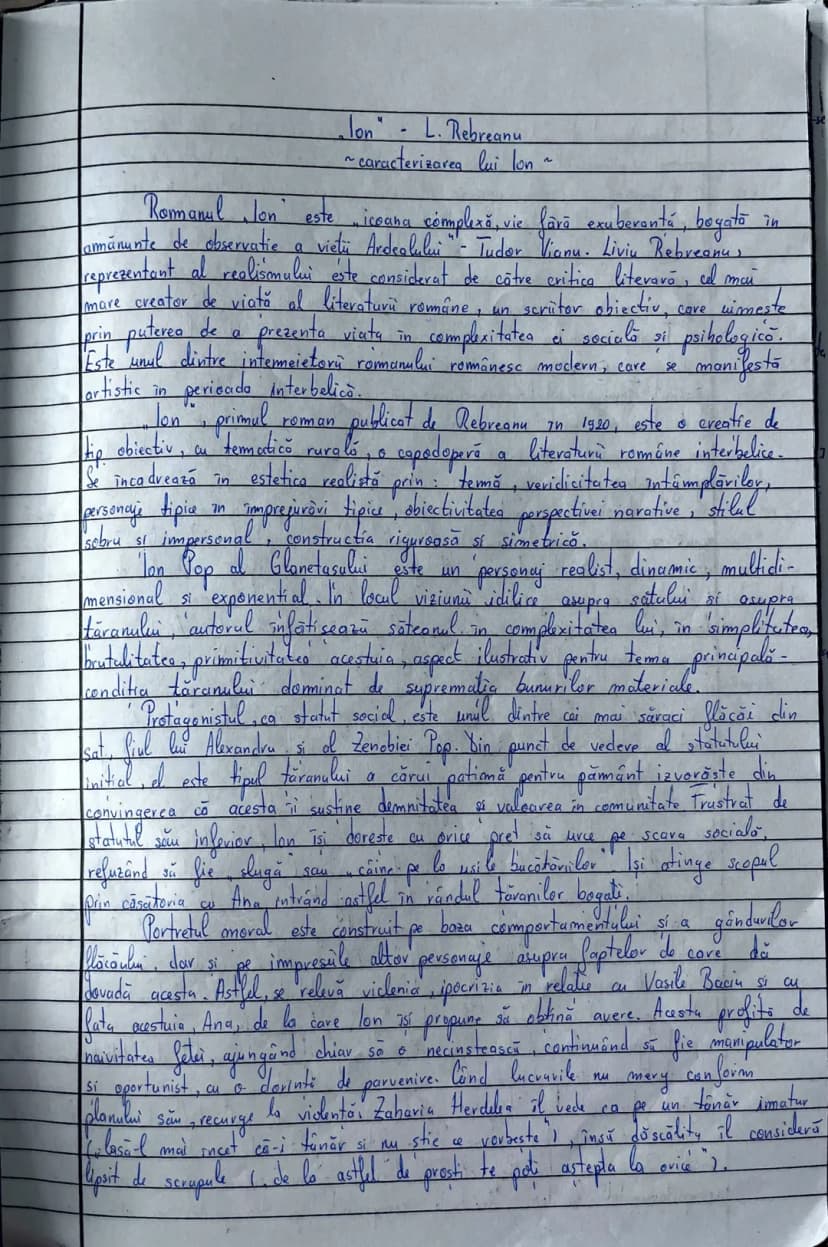 „Ion" - L. Rebreanu
~ caracterizarea lui Ion ~
Romanul „Ion" este „icoana complexă, vie fără exuberantă, bogată în
amănunte de observatie a vietii Ardealului" - Tudor Vianu. Liviu Rebreanu,
reprezentant al realismului este considerat de către critica literară, cel mai
mare creator de viată al literaturii române, un scriitor obiectiv, care uimeste
prin puterea de a prezenta viata în complexitatea ei socială si psihologică.
Este unul dintre intemeietorii romanului românesc modern, care se manifestă
artistic în perioada interbelică.
„Ion", primul roman publicat de Rebreanu în 1920, este o creatie de
tip obiectiv, cu tematică rurală, o capodoperă a literaturii române interbelice.
Se încadrează în estetica realistă prin: temă, veridicitatea întâmplărilor,
personaje tipice în împrejurări tipice, obiectivitatea perspectivei narative, stilul
sobru si impersonal, constructia riguroasă si simetrică.
Ion Pop al Glanetasului este un personaj realist, dinamic, multidi-
mensional si exponential. În locul viziunii idilice asupra satului si asupra
tăranului, autorul înfătisează săteanul în complexitatea lui, în simplitatea,
brutalitatea, primitivitatea acestuia, aspect ilustrativ pentru tema principală -
conditia tăranului dominat de suprematia bunurilor materiale.
Protagonistul, ca statut social, este unul dintre cei mai săraci flăcăi din
sat, fiul lui Alexandru si al Zenobiei Pop. Din punct de vedere al statutului
initial, el este tipul tăranului a cărui patimă pentru pământ izvorăste din
convingerea că acesta îi sustine demnitatea si valoarea în comunitate Frustrat de
statutul său inferior, Ion îsi doreste cu orice pret să urce pe scara socială,
refuzând să fie „slugă" sau „câine pe la usile bucătăriilor" Isi atinge scopul
prin căsătoria cu Ana, intrând astfel în rândul tăranilor bogati.
Portretul moral este construit pe baza comportamentului si a gândurilor
flăcăului, dar si pe impresiile altor personaje asupra faptelor de care dă
dovadă acesta. Astfel, se relevă viclenia, ipocrizia în relatie cu Vasile Baciu si cu
fata acestuia, Ana, de la care Ion îsi propune să obtină avere. Acesta profită de
naivitatea fetei, ajungând chiar să o necinstească, continuând să fie manipulator
si oportunist, cu o dorintă de parvenire. Când lucrurile nu merg conform
planului său, recurge la violentă. Zaharia Herdelea îl vede ca pe un tânăr imatur
(„lasă-l mai încet că-i tânăr si nu stie ce vorbeste"), însă dăscălița îl consideră
lipsit de scrupule („de la astfel de prosti te poti astepta la orice").